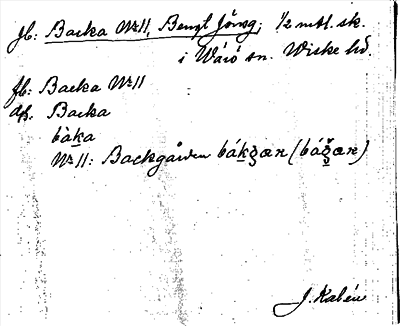 jb: Backa Nr 11, Bengt Jönsg; 1/2 mtl. sk.
i Wärö sn. Wiske hd.
jb: Backa Nr 11
df. Backa
bàka
Nr 11: Backgården bák̲ʒæn (báǯ̲æn)
J. Kalén